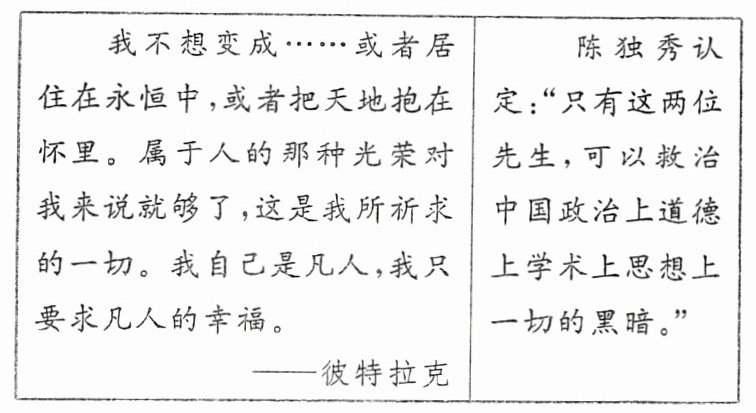 我不想变成……或者居
住在永恒中,或者把天地抱在
怀里。属于人的那种光荣对
我来说就够了,这是我所祈求
的一切。我自己是凡人,我只
要求凡人的幸福。
——彼特拉克
陈独秀认
定:“只有这两位
先生,可以救治
中国政治上道德
上学术上思想上
一切的黑暗。”